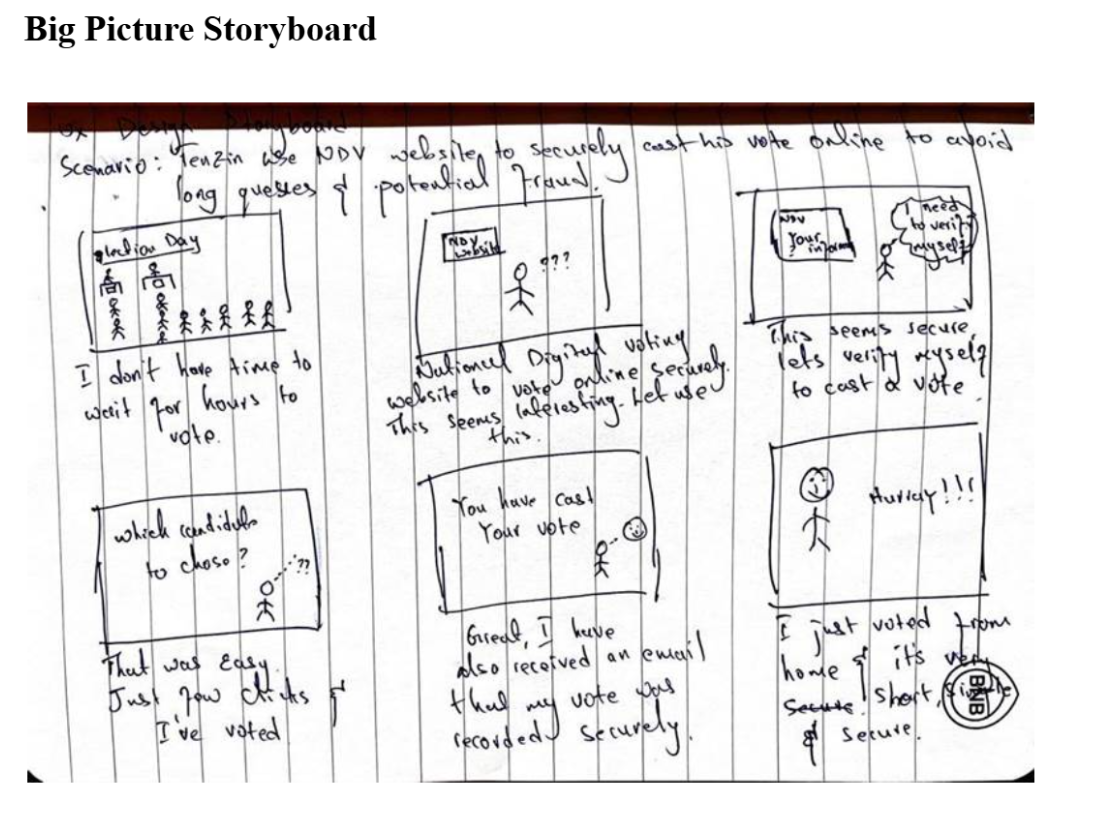 Big Picture Storyboard
UX Design Storyboard
Scenario: Tenzin use NDV website to securely cast his vote online to avoid
long queues & potential fraud.
Election Day
I don't have time to
wait for hours to
vote.
NDV
website
???
National Digital voting
website to vote online securely.
This seems interesting. Let use
this.
NDV
Your
inform
?
I need
to verify
myself
This seems secure,
lets verify myself
to cast a vote.
which candidate
to chose?
??
That was easy.
Just few clicks &
I've voted
You have cast
Your vote
Great, I have
also received an email
that my vote was
recorded securely.
Hurray!!!
I just voted from
home & it's very
secure short, simple
& secure.
BNB